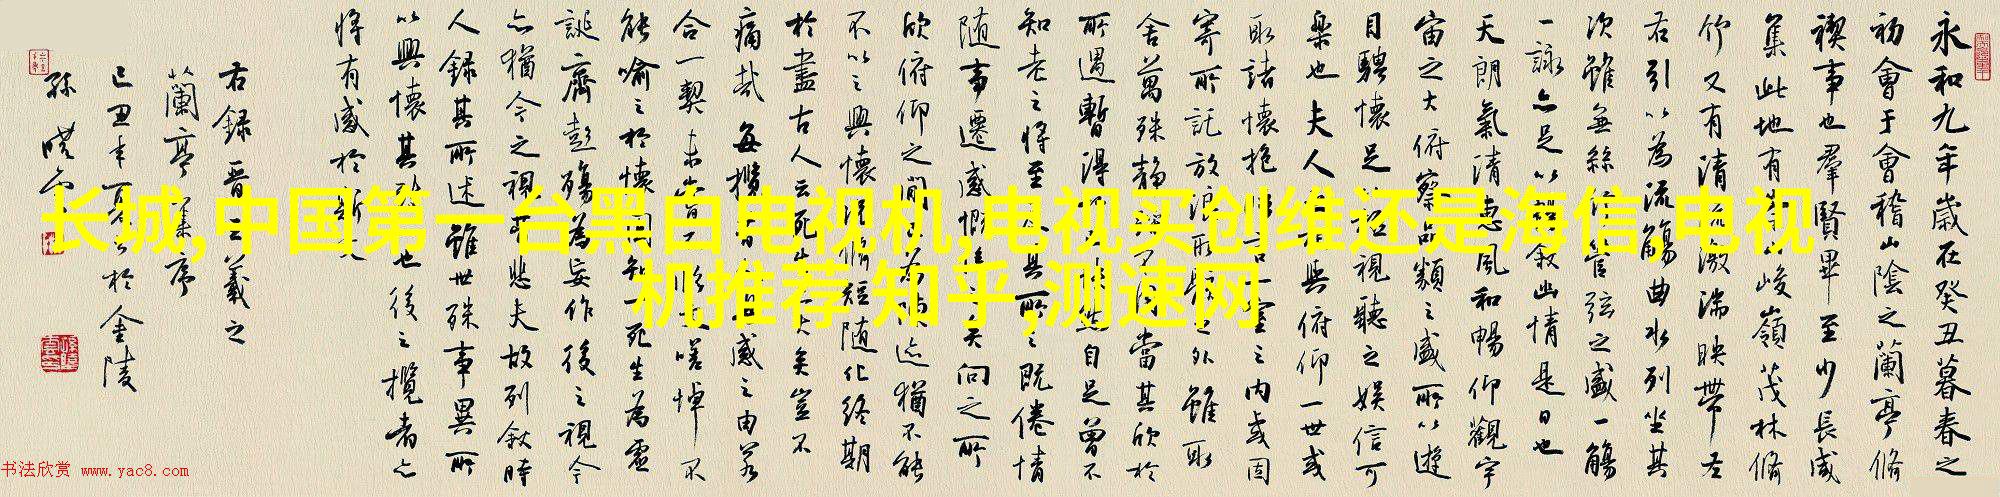 永和九年歲在癸丑暮春之
初會于會稽山陰之蘭亭脩
禊事也羣賢畢至少長咸
集此地有峻嶺茂林脩
竹又有清流激湍映帶左
右引以為流觴曲水列坐其
次雖無絲竹管弦之盛一觴
一詠亦足以暢敘幽情是日也
天朗氣清惠風和暢仰觀宇
宙之大俯察品類之盛所以遊
目騁懷足以極視聽之娛信可
樂也夫人之相與俯仰一世或
取諸懷抱悟言一室之內或因
寄所託放浪形骸之外雖取
舍萬殊靜躁不同當其欣於
所遇暫得於己快然自足曾不
知老之將至及其所之既倦情
隨事遷感慨係之矣向之所
欣俯仰之間已為陳迹猶不能
不以之興懷況脩短隨化終期
於盡古人云死生亦大矣豈不
痛哉每攬昔人興感之由若
合一契未嘗不臨文嗟悼不
能喻之於懷固知一死生為虛
誕齊彭殤為妄作後之視今
亦猶今之視昔悲夫故列敘時
人錄其所述雖世殊事異所
以興懷其致一也後之攬者亦
將有感於斯文
右錄晉王羲之
蘭亭集序
己丑年夏於金陵
孫曉雲
长城,中国第一台黑白电视机,电视买创维还是海信,电视
机推荐 知乎,测速网
书法欣赏 www.yac8.com